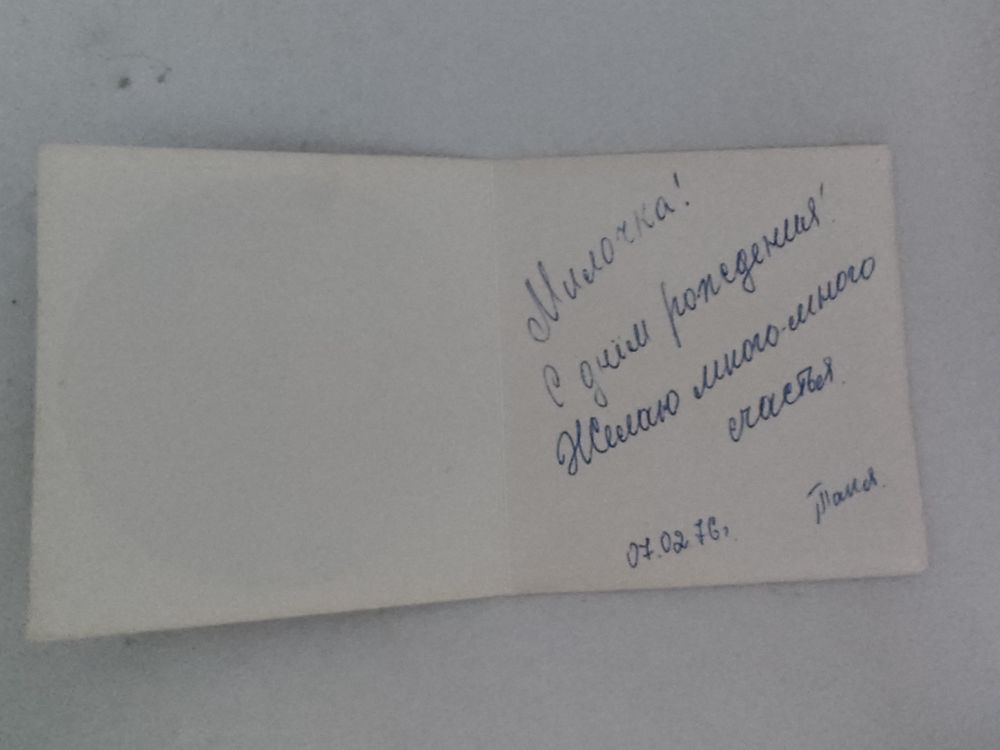 Милочка!
С днём рождения!
Желаю много-много
счастья.
Таня.
07.02.76г.